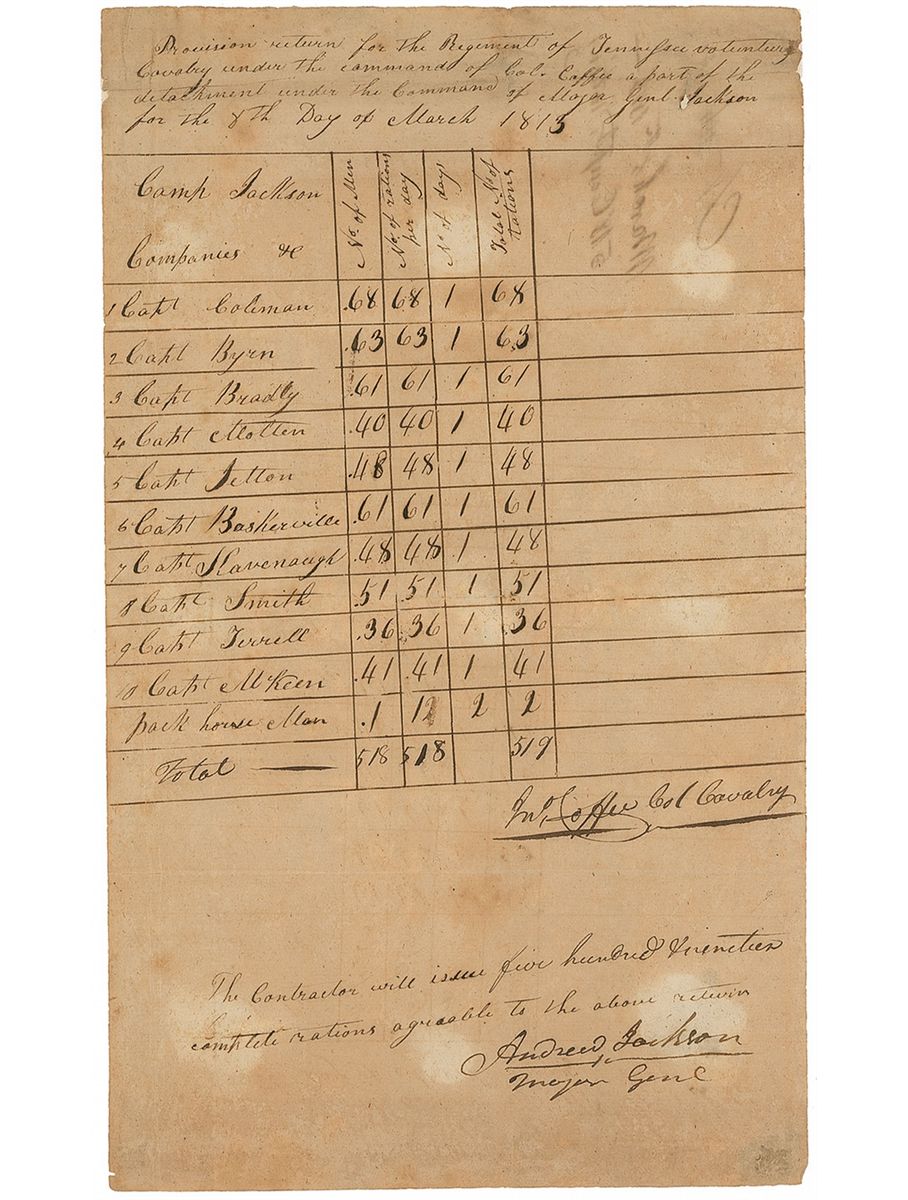 Provision return for the Regiment of Tennessee volunteers
Cavalry under the command of Col. Coffee a part of the
detachment under the Command of Major Genl. Jackson
for the 8th Day of March 1813
Camp Jackson
Companies &c
No. of Men
No. of rations per day
No. of days
Total No. of Rations
1 Capt Coleman .68 68 1 68
2 Capt Byrn .63 63 1 63
3 Capt Bradly .61 61 1 61
4 Capt Molten .40 40 1 40
5 Capt Jetton .48 48 1 48
6 Capt Baskerville .61 61 1 61
7 Capt Kavenaugh .48 48 .1 48
8 Capt Smith .51 .51 1 .51
9 Capt Terrell .36 .36 1 .36
10 Capt McKeen .41 .41 1 41
pack horse Man .1 1 2 2
Total 518 518 519
Jno. Coffee Col Cavalry
The Contractor will issue five hundred & nineteen
complete rations agreable to the above return
Andrew Jackson
Major Genl